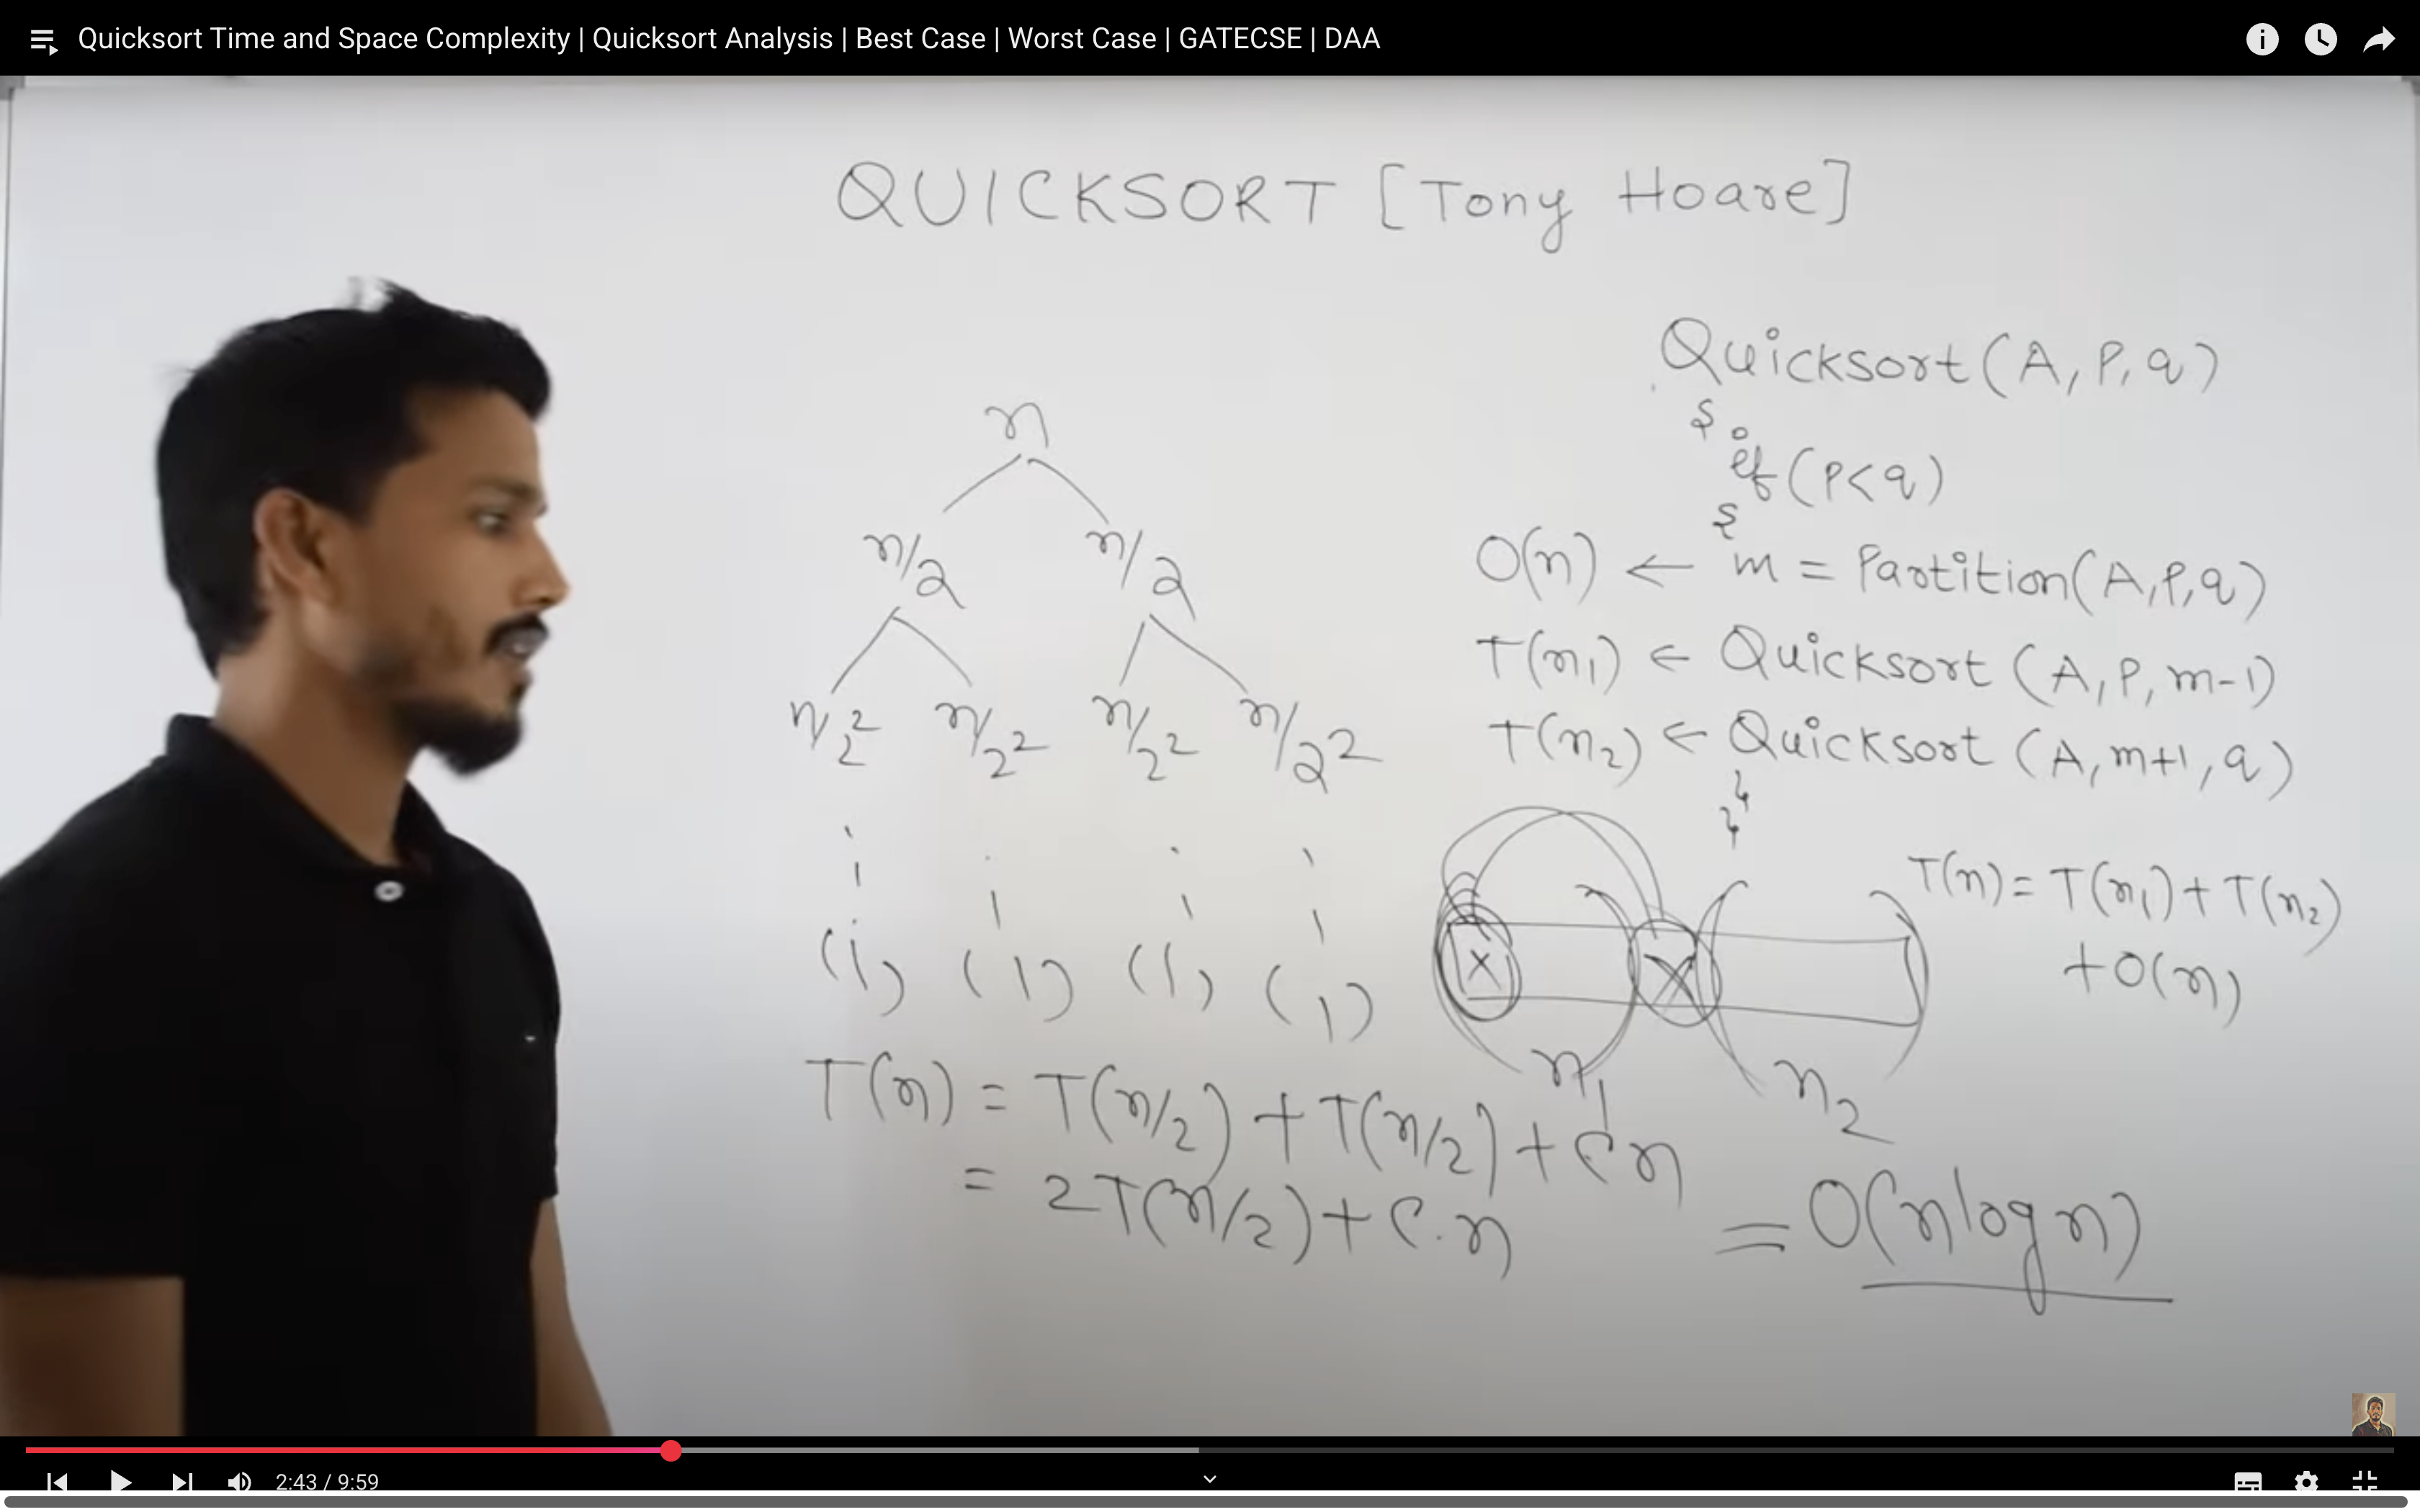 Quicksort Time and Space Complexity | Quicksort Analysis | Best Case | Worst Case | GATECSE | DAA
QUICKSORT [Tony Hoare]
n
n/2 n/2
n/2² n/2² n/2² n/2²
(1) (1) (1) (1)
T(n) = T(n/2) + T(n/2) + Cn
= 2T(n/2) + C.n
= O(nlogn)
Quicksort(A, P, q)
{
if(P<q)
{
O(n) ← m = Partition(A,P,q)
T(n₁) ← Quicksort (A, P, m-1)
T(n₂) ← Quicksort (A, m+1, q)
}
}
X X
n₁ n₂
T(n) = T(n₁) + T(n₂)
+ O(n)
2:43 / 9:59